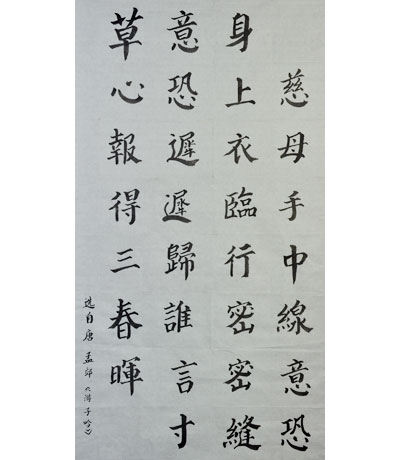 慈母手中線意恐
身上衣臨行密密縫
意恐遲遲歸誰言寸
草心報得三春暉
选自唐 孟郊《游子吟》